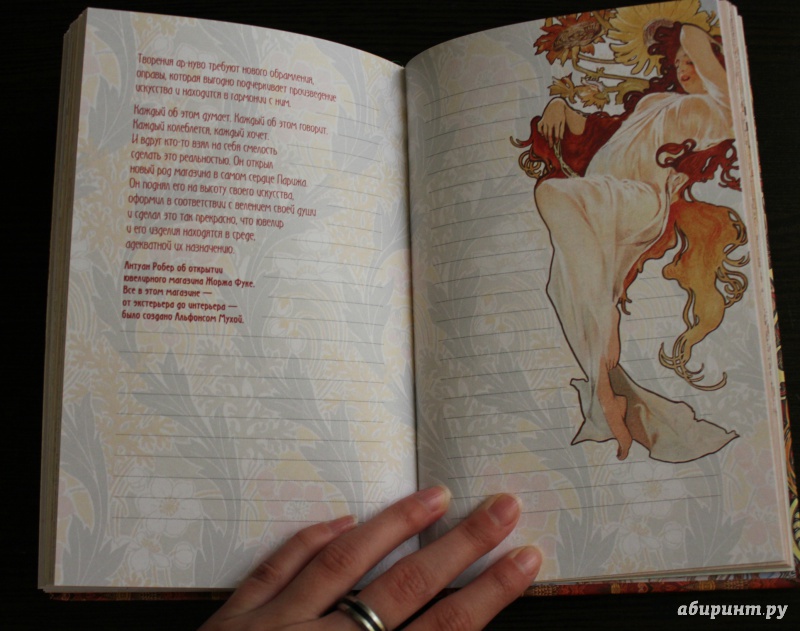 Творения ар-нуво требуют нового обрамления,
оправы, которая выгодно подчеркивает произведение
искусства и находится в гармонии с ним.
Каждый об этом думает. Каждый об этом говорит.
Каждый колеблется, каждый хочет.
И вдруг кто-то взял на себя смелость
сделать это реальностью. Он открыл
новый род магазина в самом сердце Парижа.
Он поднял его на высоту своего искусства,
оформил в соответствии с велением своей души
и сделал это так прекрасно, что ювелир
и его изделия находятся в среде,
адекватной их назначению.
Антуан Робер об открытии
ювелирного магазина Жоржа Фуке.
Все в этом магазине —
от экстерьера до интерьера —
было создано Альфонсом Мухой.
абиринт.ру